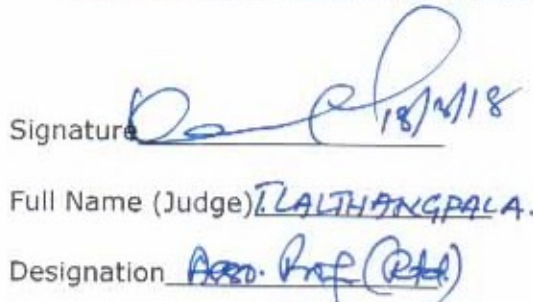 Signature 18/2/18
Full Name (Judge) T.LALTHANGPALA.
Designation Asso. Prof (Retd)